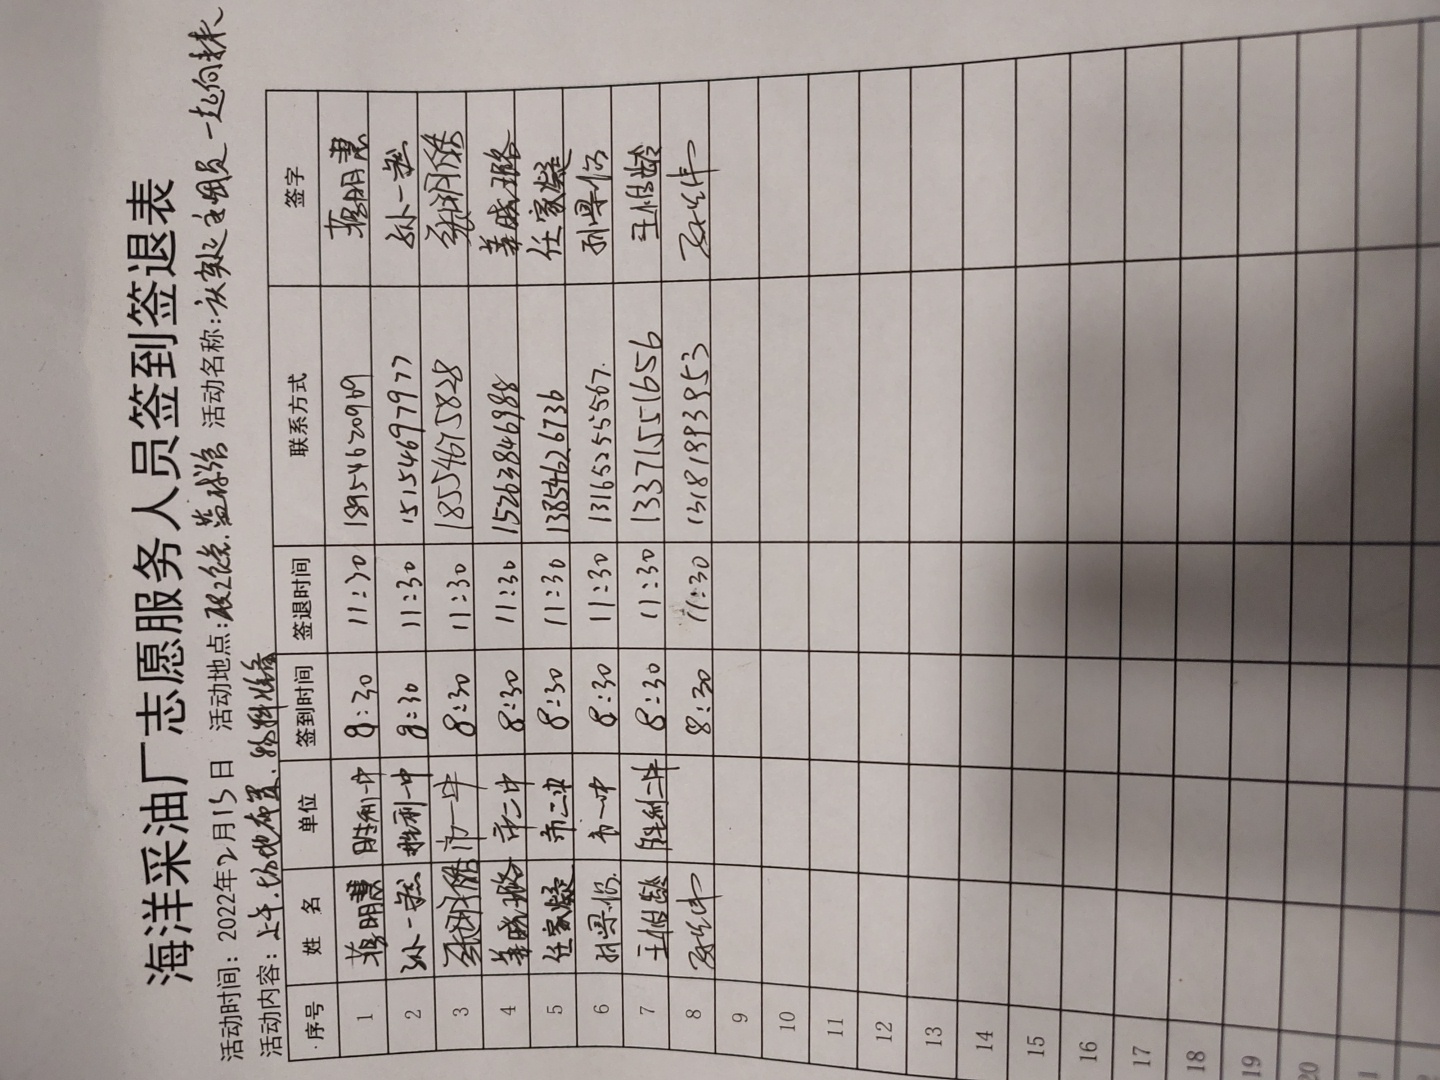 海洋采油厂志愿服务人员签到签退表
活动时间：2022年2月15日 活动地点： 篮球馆 活动名称： 一起向未来
活动内容：上午.场地布置.物料准备
序号 姓名 单位 签到时间 签退时间 联系方式 签字
1 明慧 胜利一中 8:30 11:30 18954620969 明慧
2 孙一 胜利一中 8:30 11:30 15154697977 孙一
3 市一中 8:30 11:30 18554675828
4 姜晓璐 市二中 8:30 11:30 15263846988 姜晓璐
5 任家凝 市二中 8:30 11:30 13854626736 任家凝
6 市一中 8:30 11:30 13165255567.
7 王怡龄 胜利二中 8:30 11:30 13371551656 王怡龄
8 8:30 11:30 13181993953
9
10
11
12
13
14
15
16
17
18
19
20